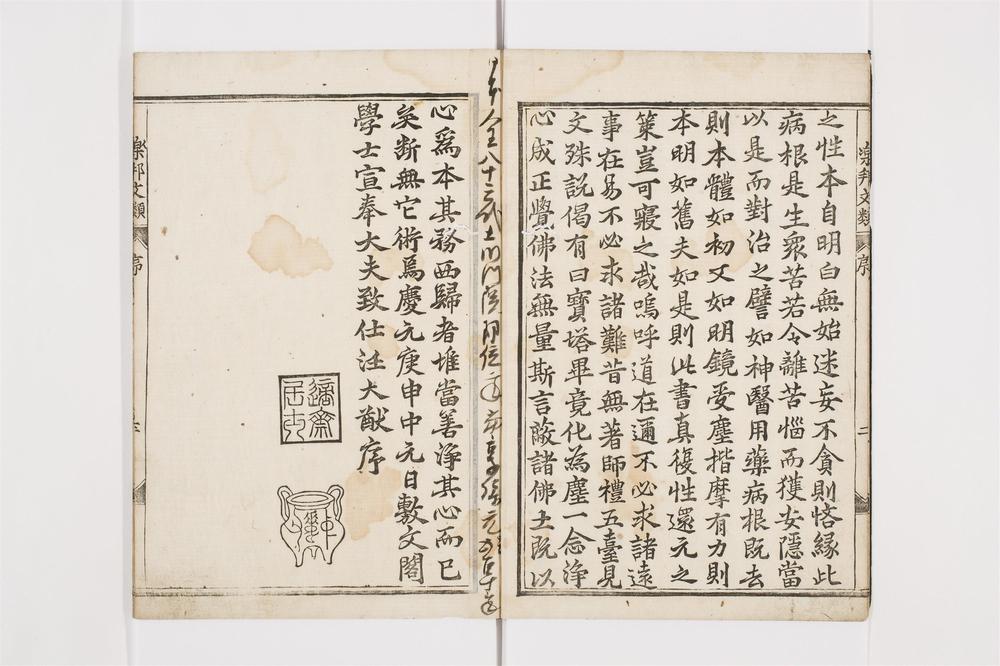 樂邦文類 序 二
之性本自明白無始迷妄不貪則悋緣此
病根是生衆苦若令離苦惱而獲安隱當
以是而對治之譬如神醫用藥病根既去
則本體如初又如明鏡受塵揩摩有力則
本明如舊夫如是則此書真復性還元之
筞豈可寢之哉嗚呼道在邇不必求諸遠
事在易不必求諸難昔無著師禮五臺見
文殊説偈有曰寶塔畢竟化為塵一念淨
心成正覺佛法無量斯言蔽諸佛土既以
心爲本其務西歸者堆當善淨其心而已
矣斷無它術焉慶元庚申中元日敷文閣
學士宣奉大夫致仕汪大猷序
適齋
居士
樂邦文類 序